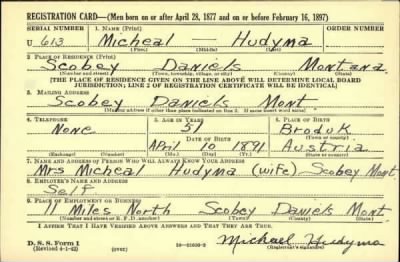 REGISTRATION CARD—(Men born on or after April 28, 1877 and on or before February 16, 1897)
SERIAL NUMBER 1. NAME (Print) ORDER NUMBER
U 613 Micheal — Hudyma
(First) (Middle) (Last)
2. PLACE OF RESIDENCE (Print)
Scobey Daniels Montana
(Number and street) (Town, township, village, or city) (County) (State)
[THE PLACE OF RESIDENCE GIVEN ON THE LINE ABOVE WILL DETERMINE LOCAL BOARD
JURISDICTION; LINE 2 OF REGISTRATION CERTIFICATE WILL BE IDENTICAL]
3. MAILING ADDRESS
Scobey Daniels Mont.
[Mailing address if other than place indicated on line 2. If same insert word same]
4. TELEPHONE 5. AGE IN YEARS 6. PLACE OF BIRTH
None 51 Broduk
DATE OF BIRTH (Town or county)
April 10 1891 Austria
(Exchange) (Number) (Mo.) (Day) (Yr.) (State or country)
7. NAME AND ADDRESS OF PERSON WHO WILL ALWAYS KNOW YOUR ADDRESS
Mrs Micheal Hudyma (wife) Scobey Mont.
8. EMPLOYER'S NAME AND ADDRESS
Self
9. PLACE OF EMPLOYMENT OR BUSINESS
11 Miles North Scobey Daniels Mont.
(Number and street or R. F. D. number) (Town) (County) (State)
I AFFIRM THAT I HAVE VERIFIED ABOVE ANSWERS AND THAT THEY ARE TRUE.
D. S. S. Form 1
(Revised 4-1-42) (over) Michael Hudyma
(Registrant's signature)